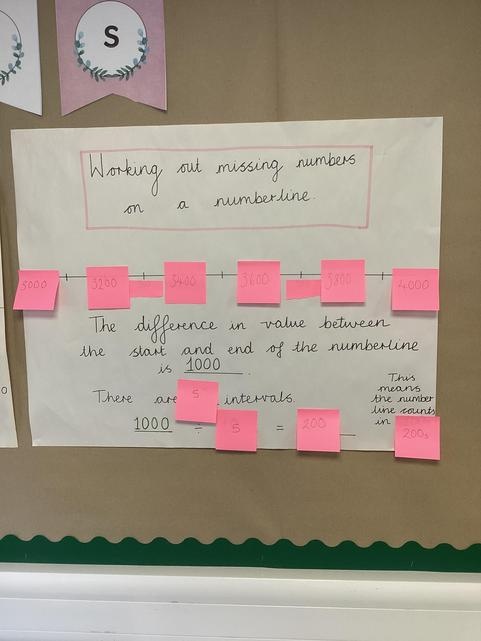 S
Working out missing numbers
on a numberline.
3000 3200 3400 3600 3800 4000
The difference in value between
the start and end of the numberline
is 1000.
There are 5 intervals.
1000 ÷ 5 = 200
This
means
the number
line counts
in 200s